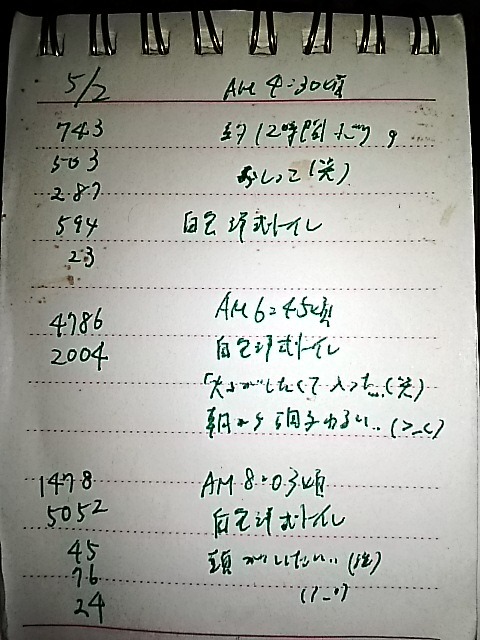 5/2 AM 4:30頃
743 約12時間ぶり。
503 おしっこ(笑)
287
594 自宅洋式トイレ
23
4786 AM 6:45頃
2004 自宅洋式トイレ
大がしたくて入った...(笑)
朝から調子わるい..(>_<)
1478 AM 8:03頃
5052 自宅洋式トイレ
45 頭がいたい..
76
24